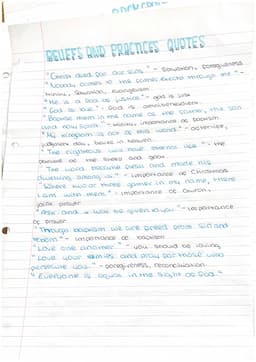 BELIEFS AND PRACTICES QUOTES
"Christ died for our sins" - Salvation, forgiveness
"Nobody comes to the father except through me" -
trinity, salvation, evangelism
"He is a God of justice" - god is just
"God is love" - God is omnibenevolent
"Baptise them in the name of the father, the son
and holy spirit" - trinity, importance of baptism
"My kingdom is not of this world" - afterlife,
judgement day, belief in heaven
"The righteous will have eternal life" - the
parable of the sheep and goats
"The word became flesh and made his
dwelling among us" - importance of Christmas
"Where two or three gather in my name, there
I am with them" - importance of church,
prayer
"Ask and it will be given to you" - importance
of prayer
"Through baptism we are freed from sin and
reborn" - importance of baptism
"Love one another" - you should be loving
"Love your enemies and pray for those who
persecute you" - forgiveness, reconciliation
"Everyone is equal in the sight of God"